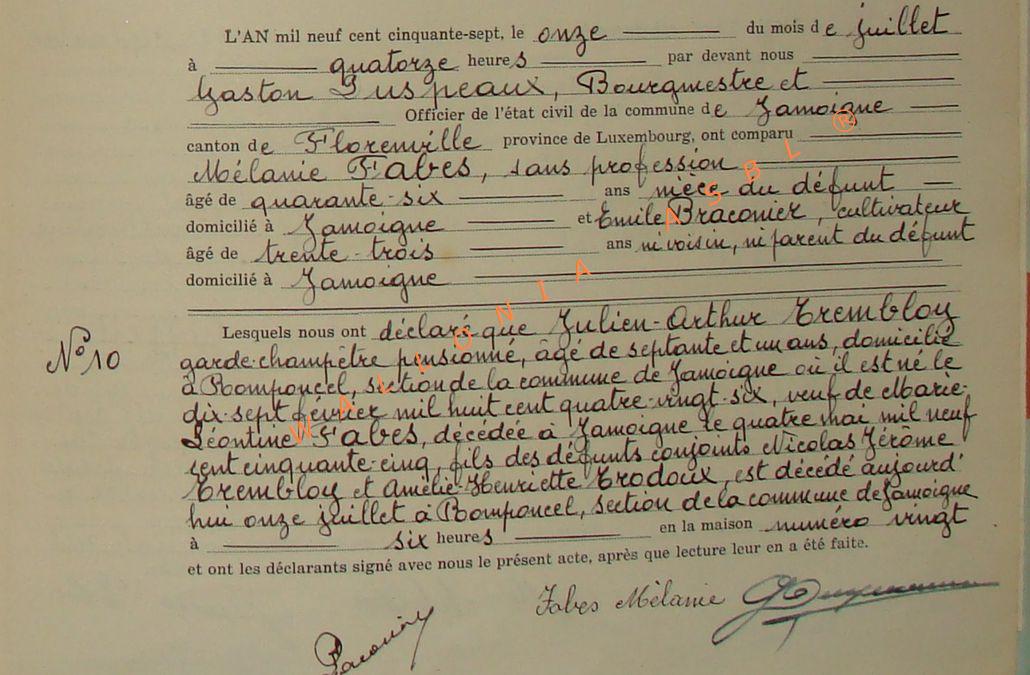 L'AN mil neuf cent cinquante-sept, le onze du mois de juillet
à quatorze heures par devant nous
Gaston Puspeaux, Bourgmestre et
Officier de l'état civil de la commune de Jamoigne
canton de Florenville province de Luxembourg, ont comparu
Mélanie Fabes, sans profession
âgé de quarante-six ans nièce du défunt
domicilié à Jamoigne et Emile Braconier, cultivateur
âgé de trente-trois ans ni voisin, ni parent du défunt
domicilié à Jamoigne
Lesquels nous ont déclaré que Julien-Arthur Trembloy
N° 10
garde-champêtre pensionné, âgé de septante et un ans, domicilié
à Romponcel, section de la commune de Jamoigne où il est né le
dix-sept février mil huit cent quatre-vingt-six, veuf de Marie-
Léontine Fabes, décédée à Jamoigne le quatre mai mil neuf
cent cinquante-cinq, fils des défunts conjoints Nicolas Jérôme
Trembloy et Amélie-Henriette Trodoux, est décédé aujourd'
hui onze juillet à Romponcel, section de la commune de Jamoigne
à six heures en la maison numéro vingt
et ont les déclarants signé avec nous le présent acte, après que lecture leur en a été faite.
Fabes Mélanie
WALLONIA ASBL ®